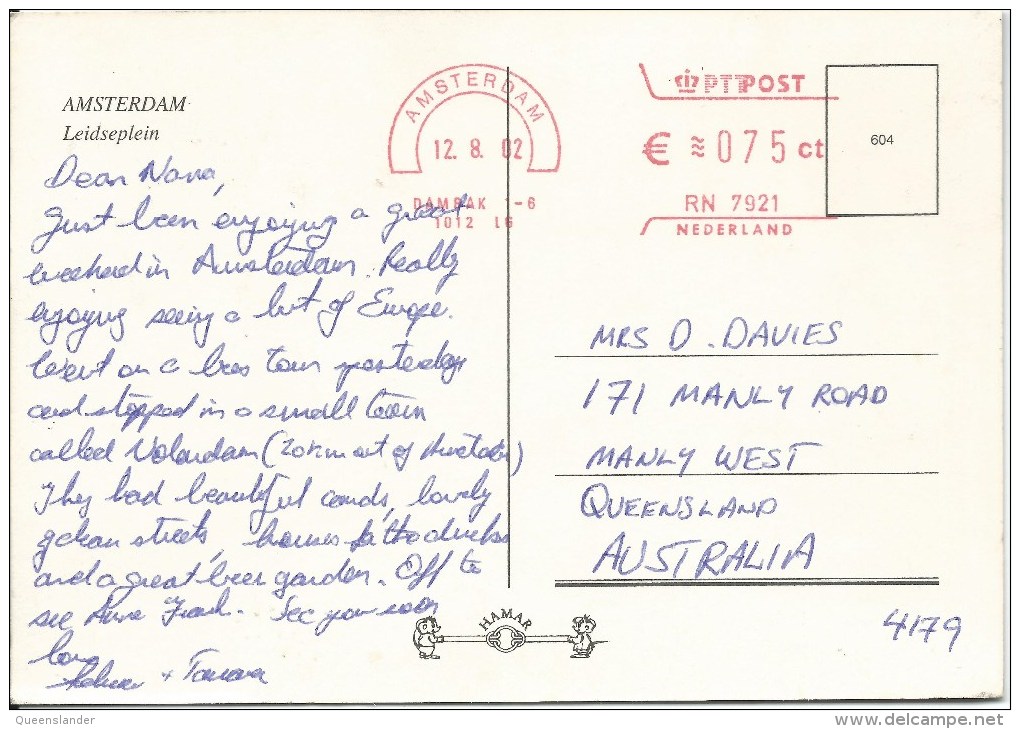 AMSTERDAM
Leidseplein
AMSTERDAM
12. 8. 02
DAMRAK 1-6
1012 LG
PTT POST
€ ≈075 ct
RN 7921
NEDERLAND
604
Dear Nana,
Just been enjoying a great
weekend in Amsterdam. Really
enjoying seeing a bit of Europe.
Went on a bus tour yesterday
and stopped in a small town
called Volendam (20km out of Amsterdam)
They had beautiful canals, lovely
clean streets, houses
and a great beer garden. Off to
see Anne Frank. See you soon
love
+ Tamara
MRS D. DAVIES
171 MANLY ROAD
MANLY WEST
QUEENSLAND
AUSTRALIA
4179
HAMAR
Queenslander
www.delcampe.net